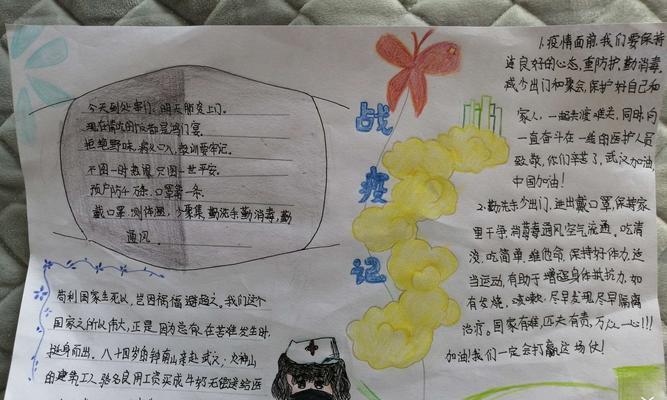 今天到处串门，明天肺炎上门。
现在请吃的饭都是鸿门宴。
拒绝野味，病从口入，教训要牢记。
不图一时热闹，只图一世平安。
预防千万条，口罩第一条。
戴口罩，测体温，少聚集，勤洗手勤消毒，勤
通风。
苟利国家生死以，岂因祸福避趋之。我们这个
国家之所以伟大，正是因为总有在苦难发生时
挺身而出，八十四岁的钟南山奔赴武汉，火神山
的建筑工人
用工资买成牛奶无偿送给医
战
疫
记
1.疫情面前，我们要保持
这良好的心态，重防护，勤消毒，
减少出门和聚会，保护好自己和
家人，一起共渡难关，同时向
一直奋斗在一线的医护人员
致敬，你们辛苦了，武汉加油，
中国加油！
2.勤洗手少出门，进出戴口罩，保持家
里干净，消毒
通风空气流通，吃清
淡，吃简单，
保持好体力，适
当运动，有助于增强身体抵抗力，如
有发烧，咳嗽，尽早发现尽早隔离
治疗。国家有难，匹夫有责，万众一心！！！
加油！我们一定会打赢这场仗！